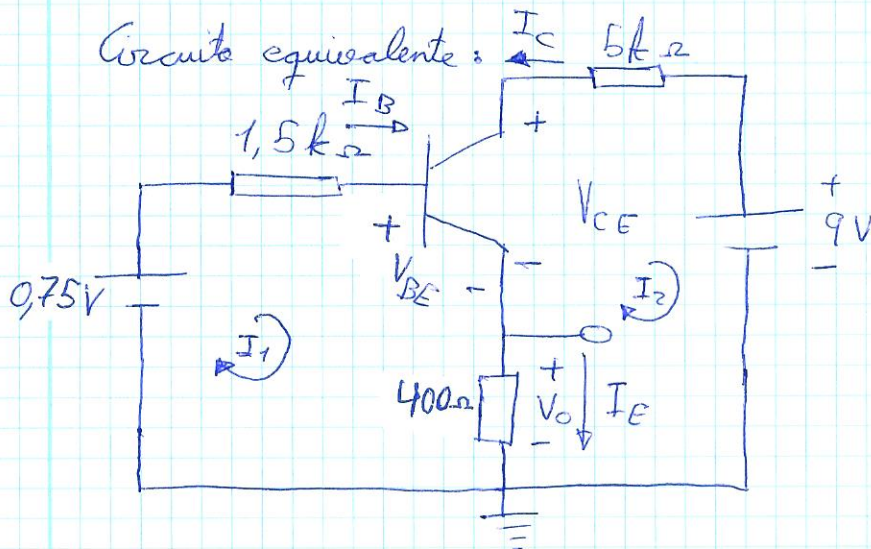 Circuito equivalente:
I_C
5kΩ
I_B
1,5kΩ
+
+
V_CE
+
9V
-
0,75V
V_BE
-
-
I_1
I_2
400Ω
+
V_O
-
I_E